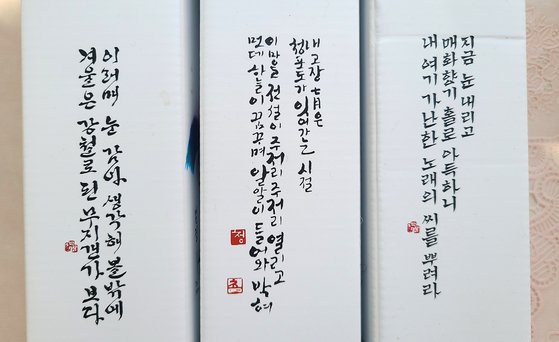 이러매 눈 감아 생각해 볼밖에
겨울은 강철로 된 무지갠가 보다
내 고장 七月은
청포도가 익어가는 시절
이 마을 전설이 주저리주저리 열리고
먼데 하늘이 꿈꾸며 알알이 들어와 박혀
청
지금 눈 내리고
매화향기 홀로 아득하니
내 여기 가난한 노래의 씨를 뿌려라